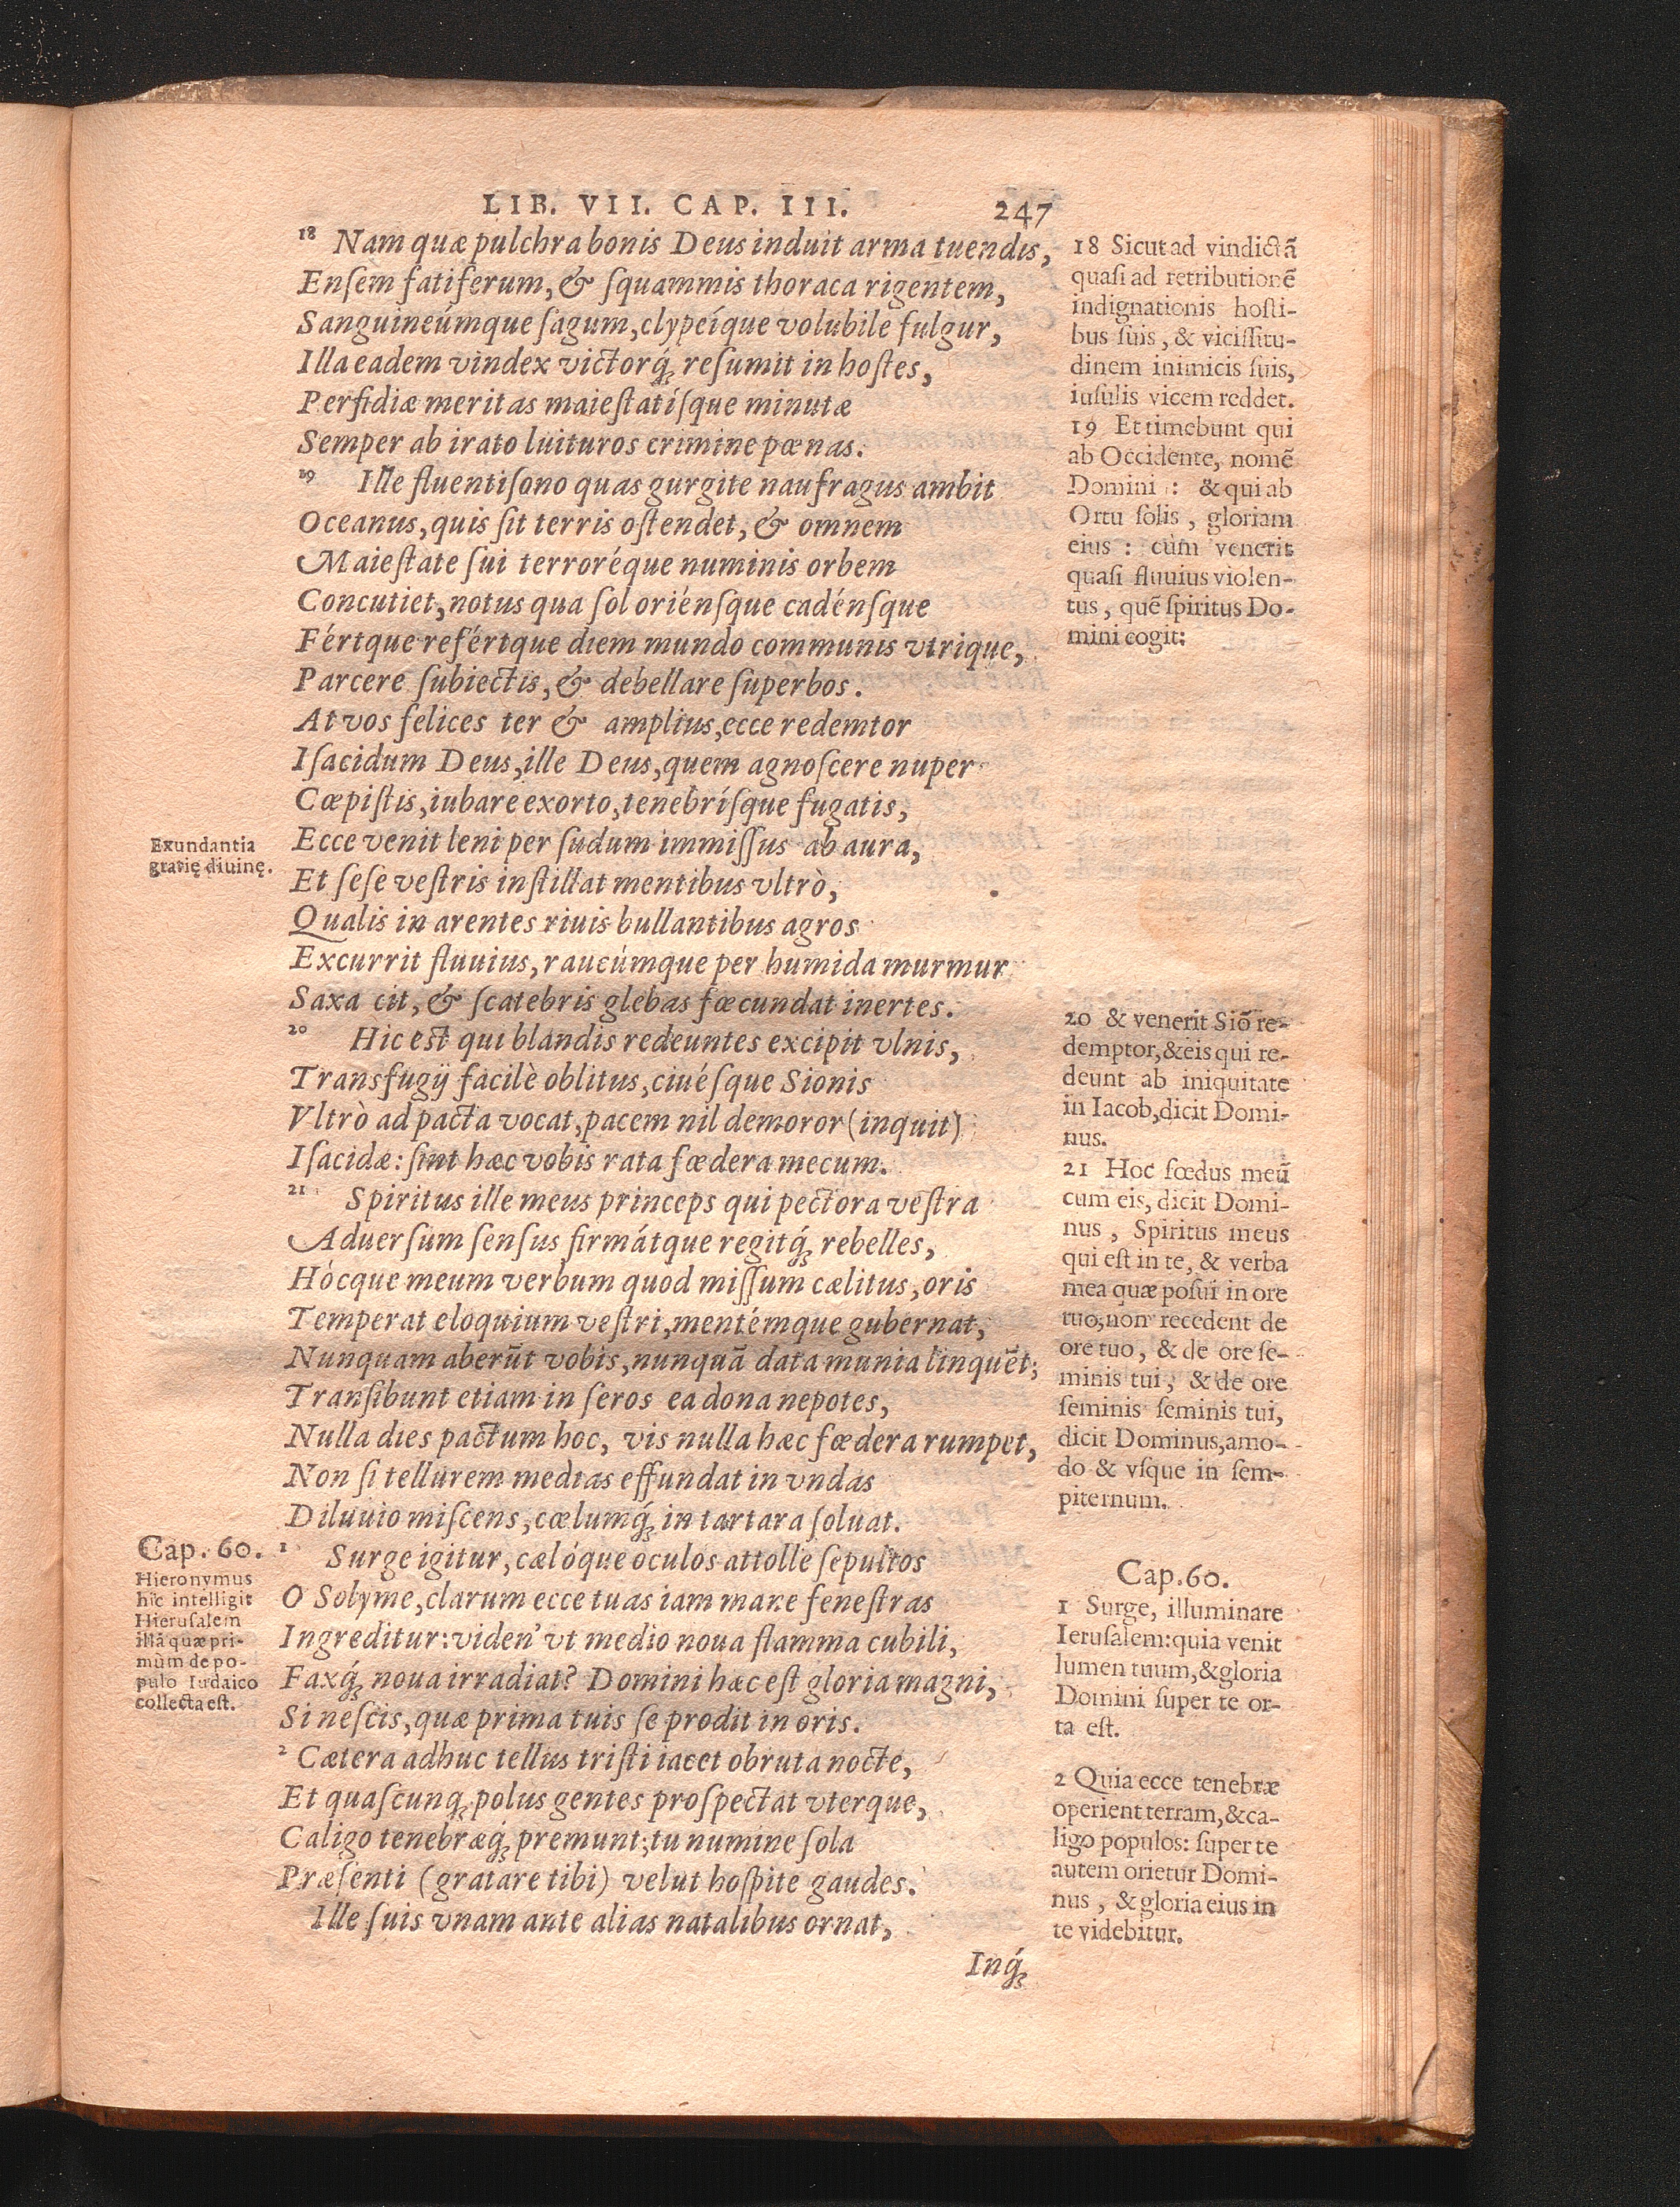 LIB. VII. CAP. III. 247
¹⁸ Nam quæ pulchra bonis Deus induit arma tuendis,
Enſem fatiferum, & ſquammis thoraca rigentem,
Sanguineúmque ſagum, clypeíque volubile fulgur,
Illa eadem vindex victorq́ꝫ reſumit in hoſtes,
Perfidiæ meritas maieſtatíſque minutæ
Semper ab irato luituros crimine pœnas.
¹⁹ Ille fluentiſono quas gurgite naufragus ambit
Oceanus, quis ſit terris oſtendet, & omnem
Maieſtate ſui terroréque numinis orbem
Concutiet, notus qua ſol oriénſque cadénſque
Fértque refértque diem mundo communis vtrique,
Parcere ſubiectis, & debellare ſuperbos.
At vos felices ter & amplius, ecce redemtor
Iſacidum Deus, ille Deus, quem agnoſcere nuper
Cœpiſtis, iubare exorto, tenebríſque fugatis,
Ecce venit leni per ſudum immiſſus ab aura,
Et ſeſe veſtris inſtillat mentibus vltrò,
Qualis in arentes riuis bullantibus agros
Excurrit fluuius, raucúmque per humida murmur
Saxa cit, & ſcatebris glebas fœcundat inertes.
²⁰ Hic est qui blandis redeuntes excipit vlnis,
Transfugij facilè oblitus, ciuéſque Sionis
Vltrò ad pacta vocat, pacem nil demoror (inquit)
Iſacidæ: ſint hæc vobis rata fœdera mecum.
²¹ Spiritus ille meus princeps qui pectora veſtra
Aduerſùm ſenſus firmátque regitq́ꝫ rebelles,
Hócque meum verbum quod miſſum cælitus, oris
Temperat eloquium veſtri, mentémque gubernat,
Nunquam aberūt vobis, nunquā data munia linquēt;
Tranſibunt etiam in ſeros ea dona nepotes,
Nulla dies pactum hoc, vis nulla hæc fœdera rumpet,
Non ſi tellurem medias effundat in vndas
Diluuio miſcens, cœlumq́ꝫ in tartara ſoluat.
¹ Surge igitur, cælóque oculos attolle ſepultos
O Solyme, clarum ecce tuas iam mane feneſtras
Ingreditur: viden' vt medio noua flamma cubili,
Faxq́ꝫ noua irradiat? Domini hæc eſt gloria magni,
Si neſcis, quæ prima tuis ſe prodit in oris.
² Cætera adhuc tellus triſti iacet obruta nocte,
Et quaſcunqꝫ polus gentes proſpectat vterque,
Caligo tenebræq́ꝫ premunt; tu numine ſola
Præſenti (gratare tibi) velut hoſpite gaudes.
Ille ſuis vnam ante alias natalibus ornat,
Inq́ꝫ
Exundantia
gratię diuinę.
Cap. 60.
Hieronymus
hîc intelligit
Hieruſalem
illā quæ pri-
mùm de po-
pulo Iudaico
collecta eſt.
18 Sicut ad vindictā
quaſi ad retributionē
indignationis hoſti-
bus ſuis, & viciſſitu-
dinem inimicis ſuis,
iuſulis vicem reddet.
19 Et timebunt qui
ab Occidente, nomē
Domini : & qui ab
Ortu ſolis, gloriam
eius : cùm venerit
quaſi fluuius violen-
tus, quē ſpiritus Do-
mini cogit:
20 & venerit Siō re-
demptor, & eis qui re-
deunt ab iniquitate
in Iacob, dicit Domi-
nus.
21 Hoc fœdus meū
cum eis, dicit Domi-
nus, Spiritus meus
qui eſt in te, & verba
mea quæ poſui in ore
tuo, non recedent de
ore tuo, & de ore ſe-
minis tui, & de ore
ſeminis ſeminis tui,
dicit Dominus, amo-
do & vſque in ſem-
piternum.
Cap. 60.
1 Surge, illuminare
Ieruſalem: quia venit
lumen tuum, & gloria
Domini ſuper te or-
ta eſt.
2 Quia ecce tenebræ
operient terram, & ca-
ligo populos: ſuper te
autem orietur Domi-
nus, & gloria eius in
te videbitur.